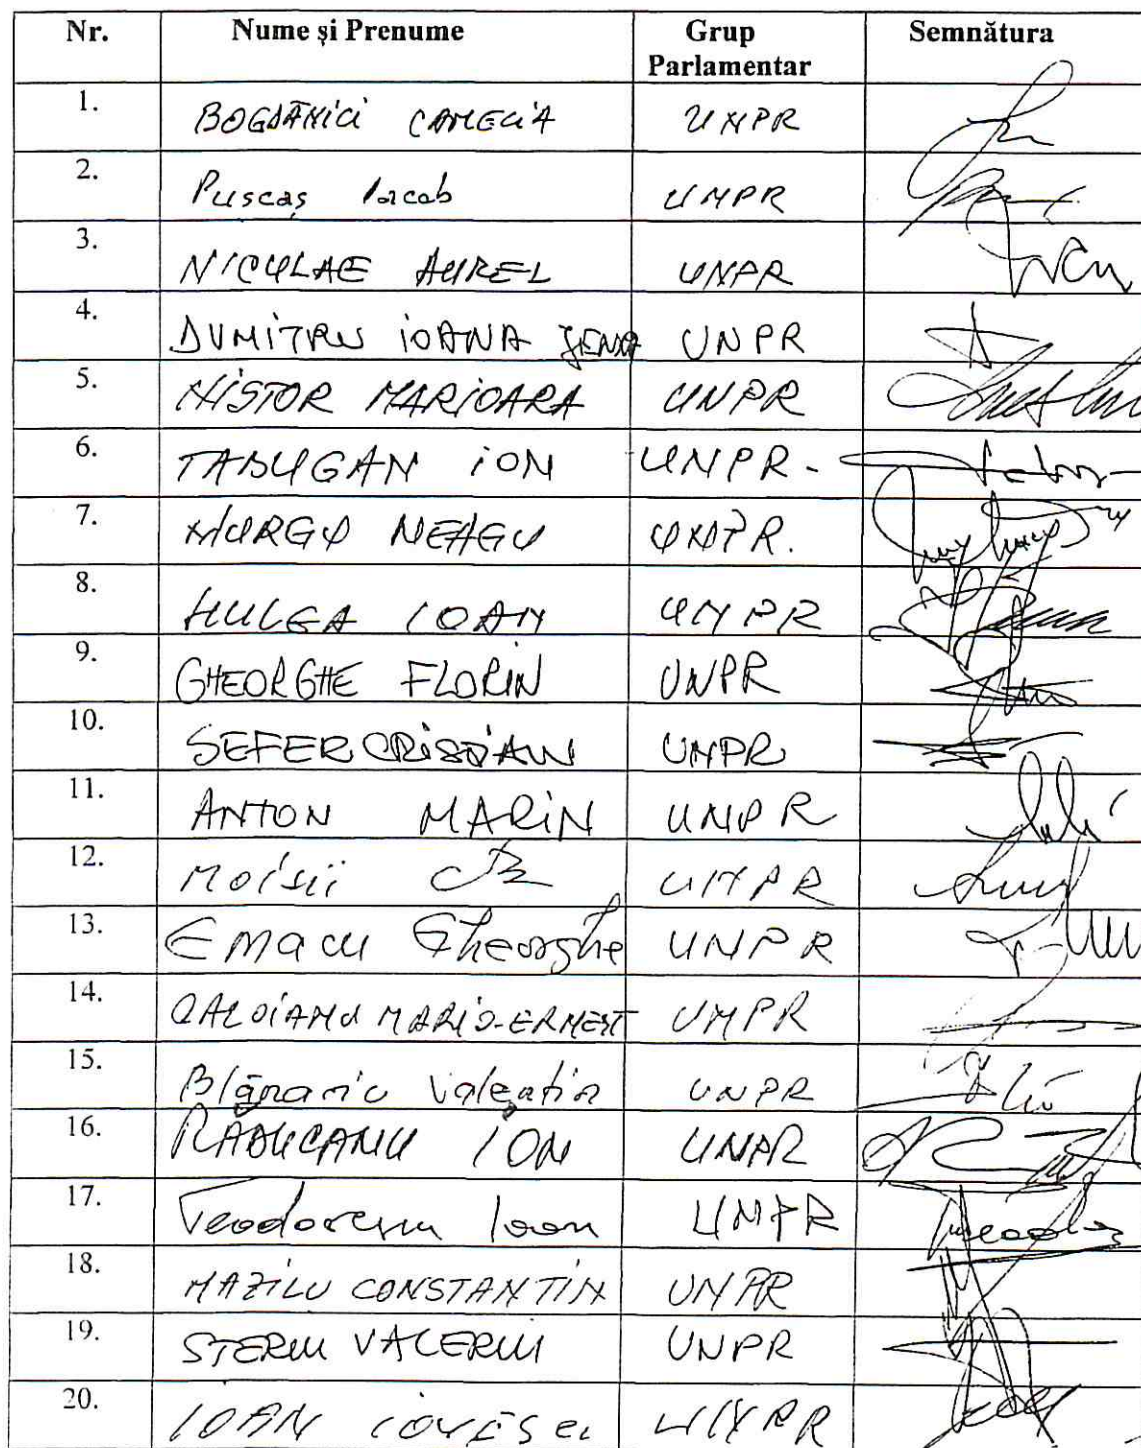 Nr. Nume și Prenume Grup Parlamentar Semnătura
1. BOGDĂNICI CAMELIA UNPR
2. Pușcaș Iacob UNPR
3. NICULAE AUREL UNPR
4. DUMITRU IOANA JENXA UNPR
5. NISTOR MARIOARA UNPR
6. TABUGAN ION UNPR-
7. MURGU NEAGU UNPR.
8. HULEA IOAN UNPR
9. GHEORGHE FLORIN UNPR
10. SEFER CRISTIAN UNPR
11. ANTON MARIN UNPR
12. Moisii UNPR
13. Emacu Gheorghe UNPR
14. CALOIANU MARIO-ERNEST UNPR
15. Blănariu Valentin UNPR
16. RĂDUCANU ION UNPR
17. Teodorescu Ioan UNPR
18. MAZILU CONSTANTIN UNPR
19. STERIU VALERIU UNPR
20. IOAN UNPR